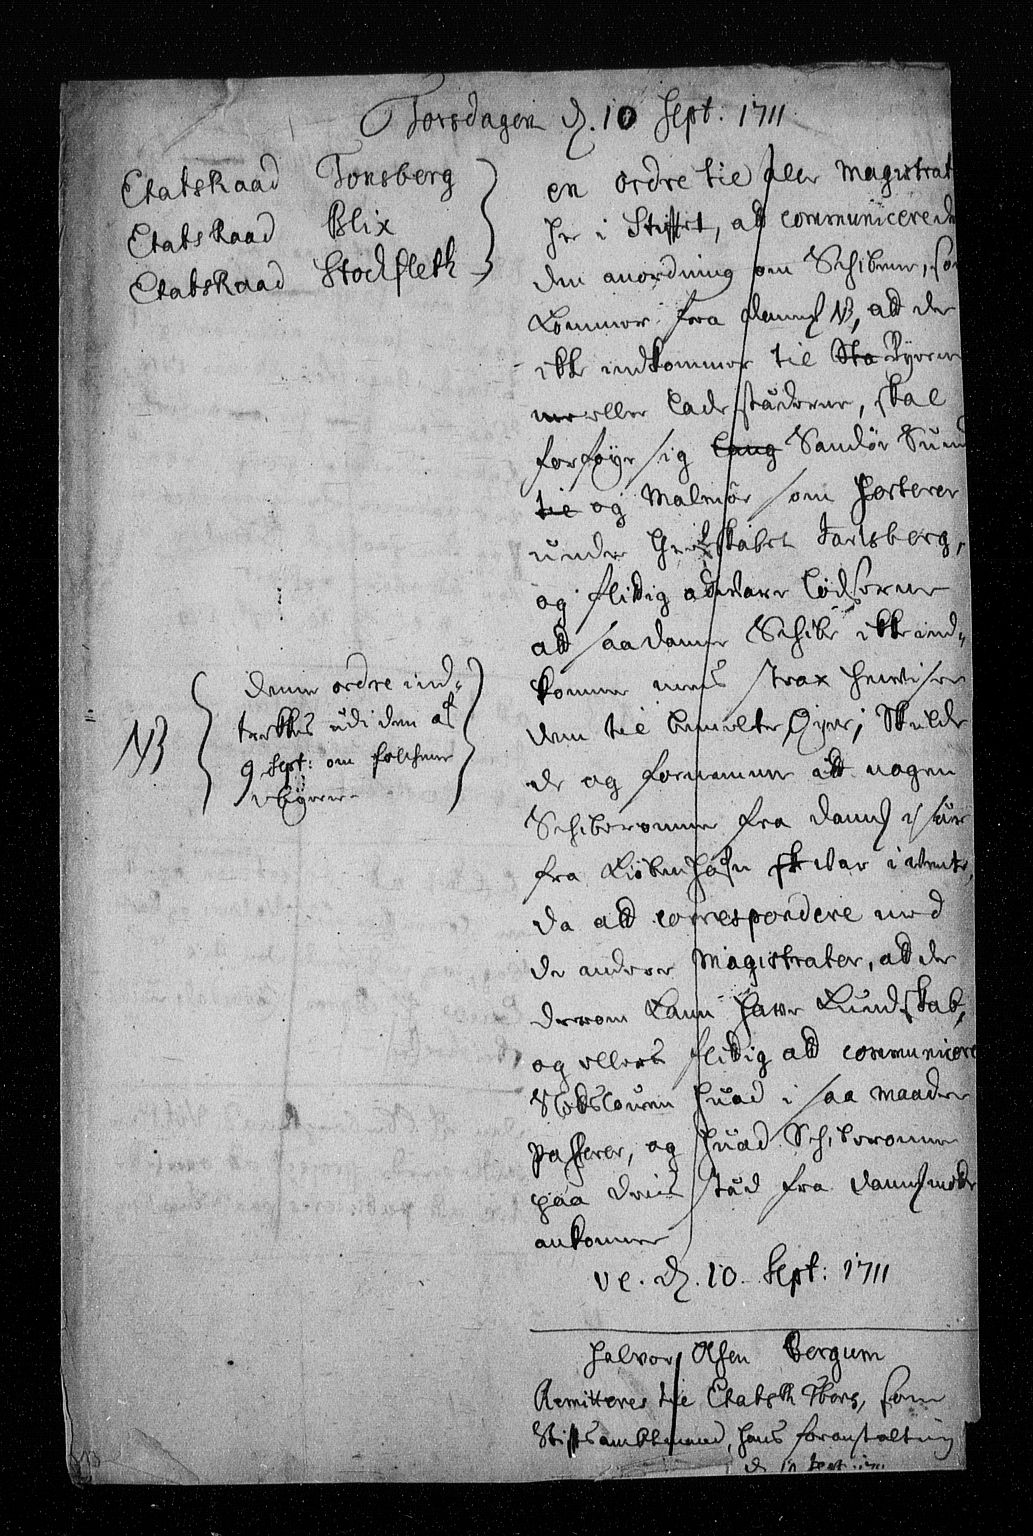 Torsdagen d. 10 Sept: 1711
EtatsRaad Tonsberg
EtatsRaad Blix
EtatsRaad Stockfleth
en ordre til aller Magistrat
her i Stifftet, at communicere
den anordning om Schibene, som
kommer fra Danm NB, at de
ikke indkommer til Sta Byerne
eller ladestæderne, skal
forføye sig lang Sandøe Sund
til og Malmøe som sorterer
under Herskabet Jarlsberg,
og flitig advare Lodserne
att saadanne Schibe ikke ind-
kommer mens strax henvise
dem til bemelte Øyer, Skulde
de og fornemme att nogen
Schiberomme fra Danm især
fra Kiøbenhafn skl var i vente,
da att correspondere med
de andere Magistrater, att de
derom kann have Kundskab,
og ellers flittig att communicere
Slotsloven huad i saa maader
passerer, og huad Schiberomme
paa deris stæd fra Danmmark
ankommer
ut. d. 10. Sept: 1711
NB
Denne ordre ind-
trekkes udi den af
9 Sept: om folchene
i Byerne
Halvor Olsen Bergum
Remitteres til Etatsr Tbers, som
Stiftsambtmand, hans foranstaltning
d. 10 Sept: 1711